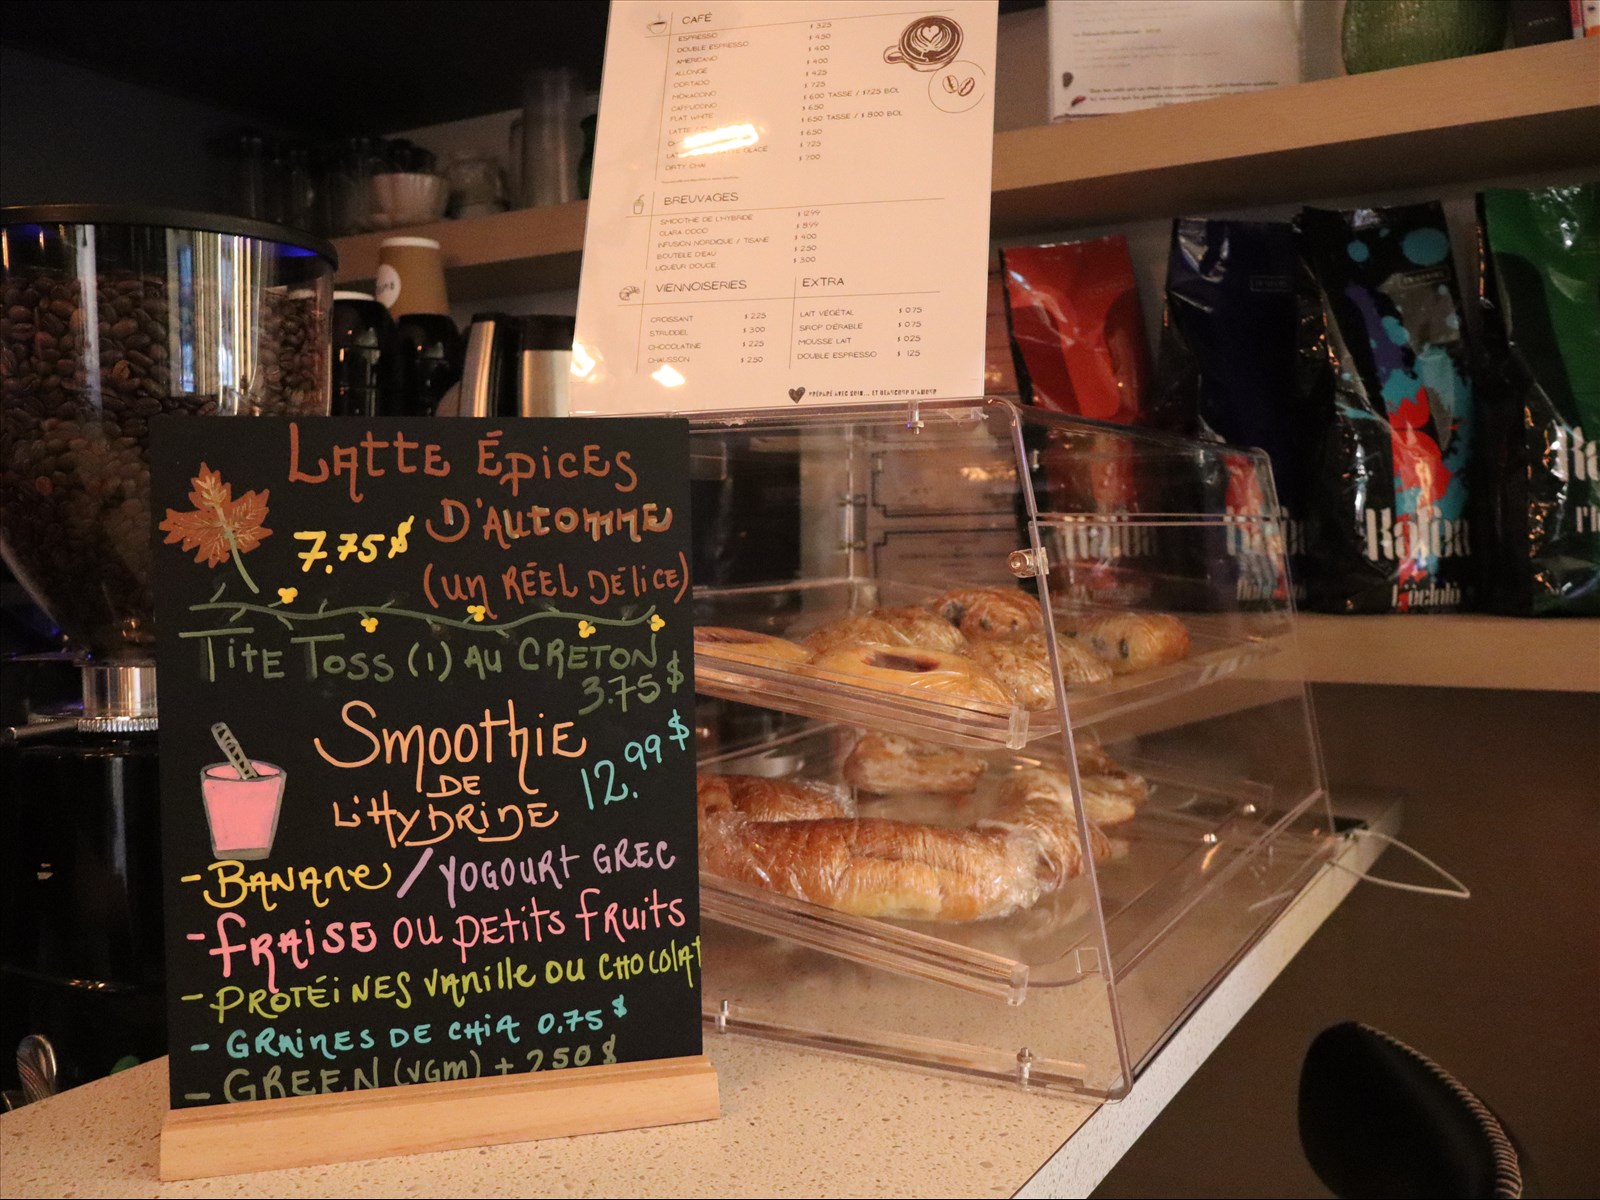 CAFÉ
ESPRESSO $ 3.25
DOUBLE ESPRESSO $ 4.50
AMERICANO $ 4.00
ALLONGÉ $ 4.00
CORTADO $ 4.25
MOKACCINO $ 7.25
CAPPUCCINO $ 6.00 TASSE / $7.25 BOL
FLAT WHITE $ 6.50
LATTE / $ 6.50 TASSE / $ 8.00 BOL
$ 6.50
GLACÉ $ 7.25
DIRTY CHAI $ 7.00
BREUVAGES
SMOOTHIE DE L'HYBRIDE $ 12.99
CLARA COCO $ 8.99
INFUSION NORDIQUE / TISANE $ 4.00
BOUTEILLE D'EAU $ 2.50
LIQUEUR DOUCE $ 3.00
VIENNOISERIES
CROISSANT $ 2.25
STRUDDEL $ 3.00
CHOCOLATINE $ 2.25
CHAUSSON $ 2.50
EXTRA
LAIT VÉGÉTAL $ 0.75
SIROP D'ÉRABLE $ 0.75
MOUSSE LAIT $ 0.25
DOUBLE ESPRESSO $ 1.25
PRÉPARÉ AVEC SOIN... ET BEAUCOUP D'AMOUR
LATTE ÉPICES
D'AUTOMNE
7.75$
(UN RÉEL DÉLICE)
TITE TOSS (1) AU CRETON
3.75$
SMOOTHIE
DE
L'HYBRIDE
12.99$
- BANANE / YOGOURT GREC
- FRAISE OU PETITS FRUITS
- PROTÉINES VANILLE OU CHOCOLAT
- GRAINES DE CHIA 0.75$
- GREEN (VGM) + 2.50$
Kafëa